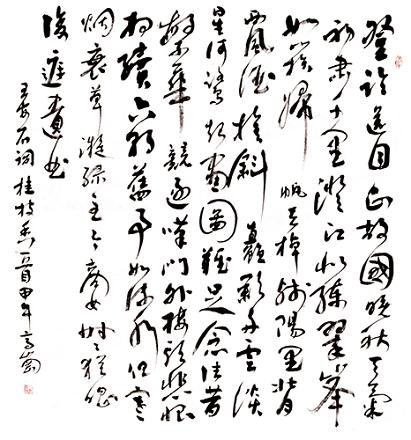 登临送目正故國晚秋天氣
初肃千里澄江似練翠峰
如簇歸帆去棹残陽里背
西風酒旗斜矗彩舟雲淡
星河鹭起画圖難足念往昔
繁華競逐嘆門外樓頭悲恨
相續六朝舊事如流水但寒
烟衰草凝綠至今商女時時猶唱
後庭遺曲
王安石詞桂枝香一首甲午